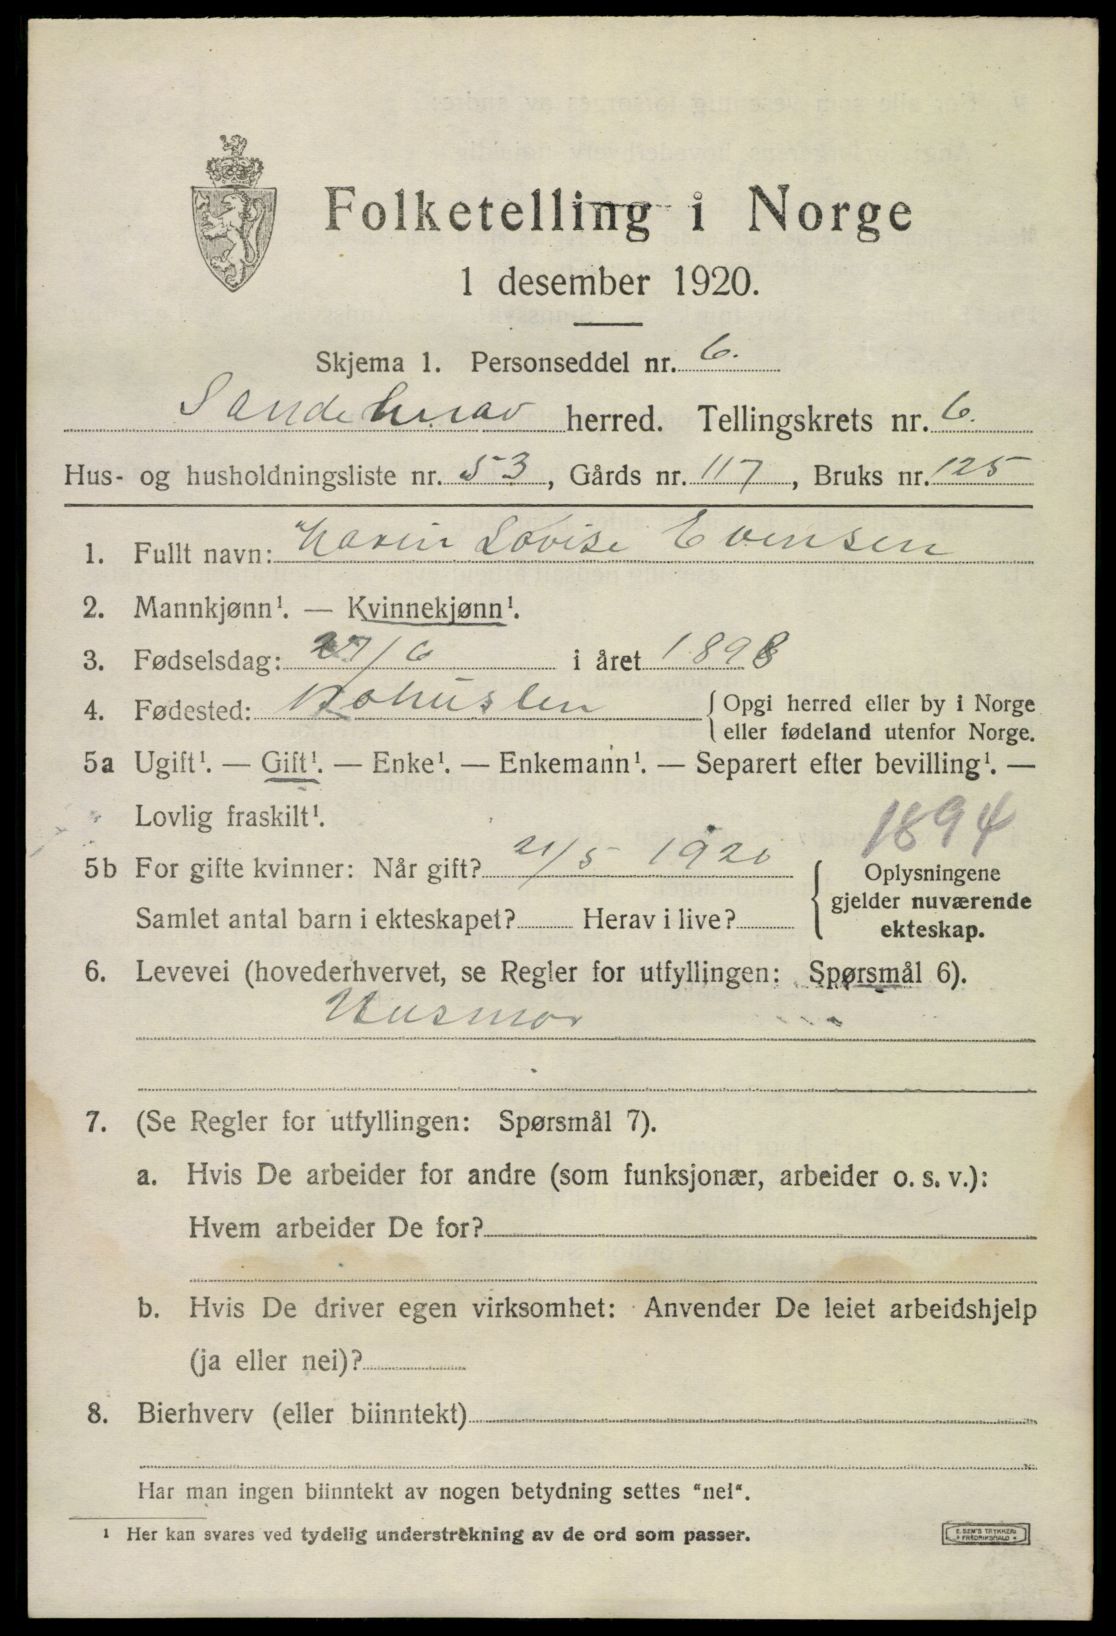 Folketelling i Norge
1 desember 1920.
Skjema 1. Personseddel nr. 6.
Sandeherav herred. Tellingskrets nr. 6.
Hus- og husholdningsliste nr. 53, Gårds nr. 117, Bruks nr. 125
1. Fullt navn: Karin Lovise Evensen
2. Mannkjønn¹. — Kvinnekjønn¹.
3. Fødselsdag: 27/6 i året 1898
4. Fødested: Bohuslen { Opgi herred eller by i Norge
eller fødeland utenfor Norge.
5a Ugift¹. — Gift¹. — Enke¹. — Enkemann¹. — Separert efter bevilling¹. —
Lovlig fraskilt¹.
1894
5b For gifte kvinner: Når gift? 21/5 1920
Samlet antal barn i ekteskapet? Herav i live?
Oplysningene
gjelder nuværende
ekteskap.
6. Levevei (hovederhvervet, se Regler for utfyllingen: Spørsmål 6).
Husmor
7. (Se Regler for utfyllingen: Spørsmål 7).
a. Hvis De arbeider for andre (som funksjonær, arbeider o. s. v.):
Hvem arbeider De for?
b. Hvis De driver egen virksomhet: Anvender De leiet arbeidshjelp
(ja eller nei)?
8. Bierhverv (eller biinntekt)
Har man ingen biinntekt av nogen betydning settes "nei".
¹ Her kan svares ved tydelig understrekning av de ord som passer.
E. SEM'S TRYKKERI
FREDRIKSHALD